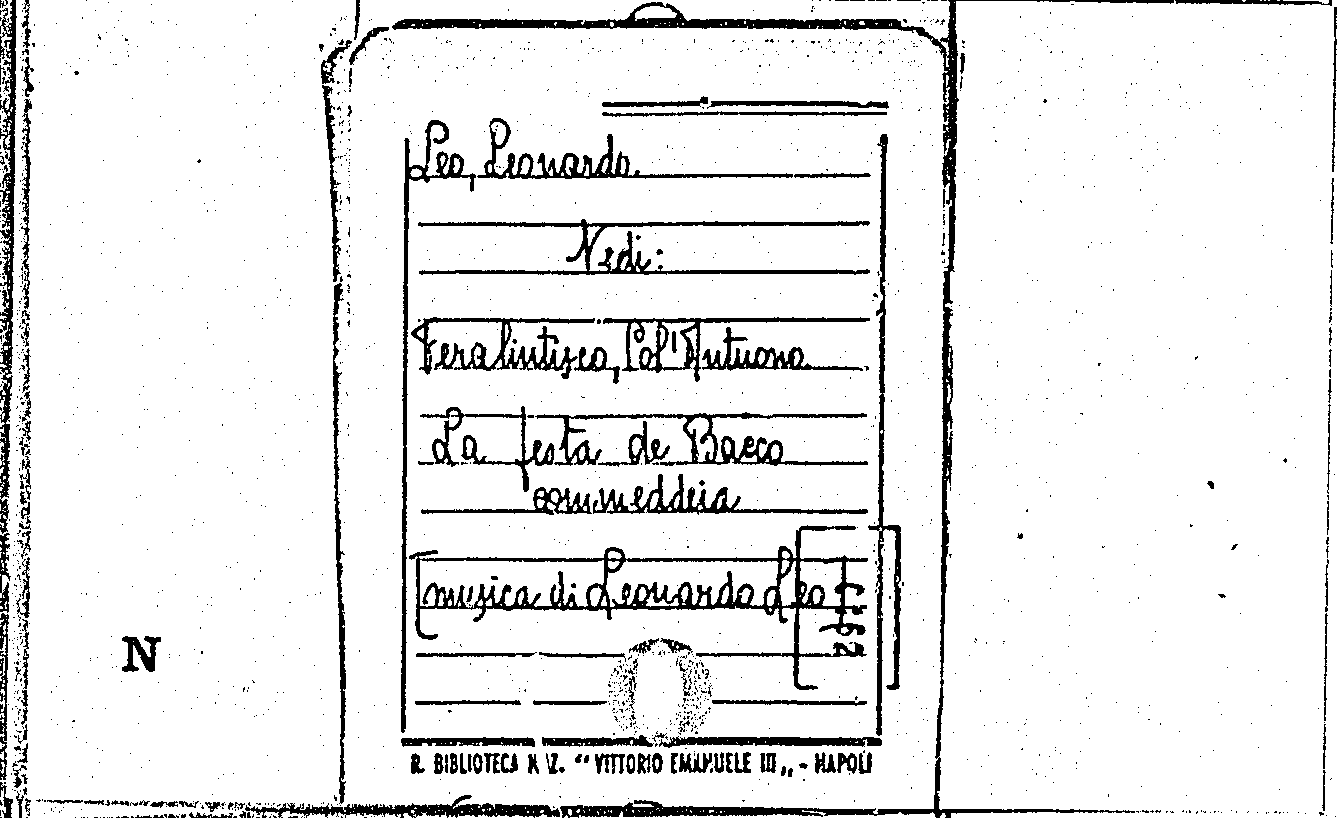 Leo, Leonardo.
Vedi:
Feralintisco, Col'Antuono.
La festa de Bacco
commeddeia
[musica di Leonardo Leo]
N
R. BIBLIOTECA NAZ. “ VITTORIO EMANUELE III „ - NAPOLI